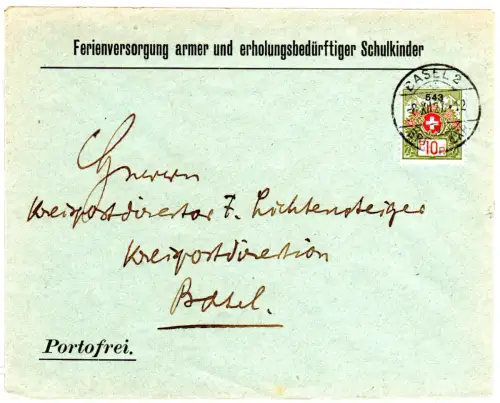 Ferienversorgung armer und erholungsbedürftiger Schulkinder
BASEL 2
543
10
Herrn
Kreispostdirector F. Lichtensteiger
Kreispostdirektion
Basel.
Portofrei.